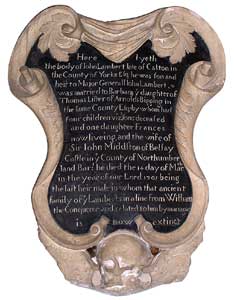 Here lyeth
the body of Iohn Lambert late of Calton in
the County of Yorke Esq he was son and
heir to Major Generall Iohn Lambert,
was married to Barbary ye daughter of
Thomas Lister of Arnolds Bigging in
the same County Esq by whom had
four children viz. sons deceased
and one daughter Frances
now living and the wife of
Sir Iohn Middlton of Bellsay
Castle in ye County of Northumber
land Bart: he died the 14 day of Mar
in the year of our Lord 1701 being
the last heir male in whom that ancient
family of ye Lamberts in a line from William
the Conqueror and related to him by marriage
is now extinct